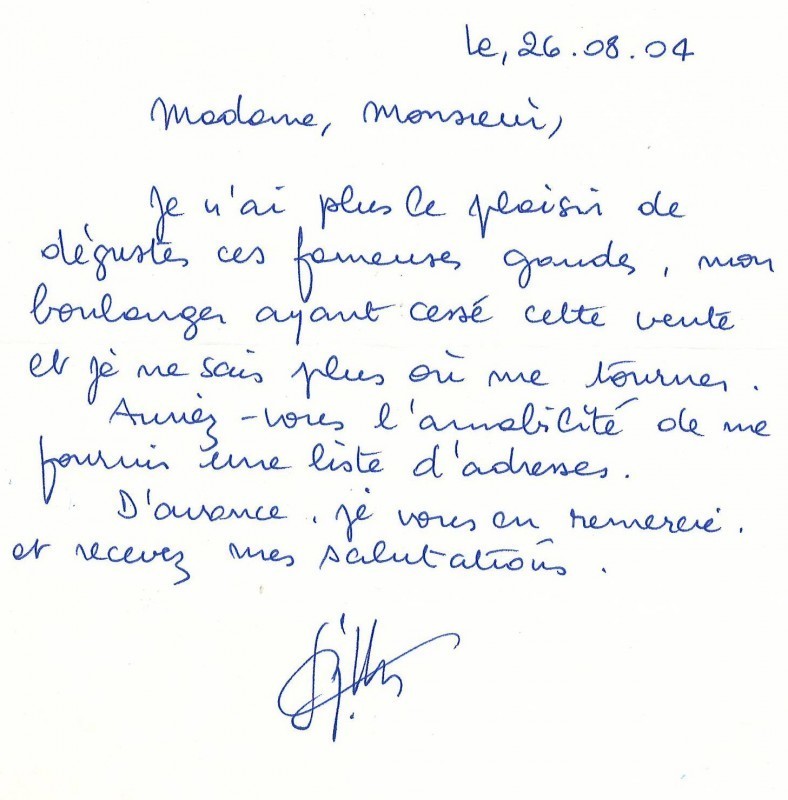 le, 26.08.04
Madame, Monsieur,
Je n'ai plus le plaisir de
déguster ces fameuses gaudes, mon
boulanger ayant cessé cette vente
et je ne sais plus où me tourner.
Auriez-vous l'amabilité de me
fournir une liste d'adresses.
D'avance, je vous en remercie.
et recevez mes salutations.